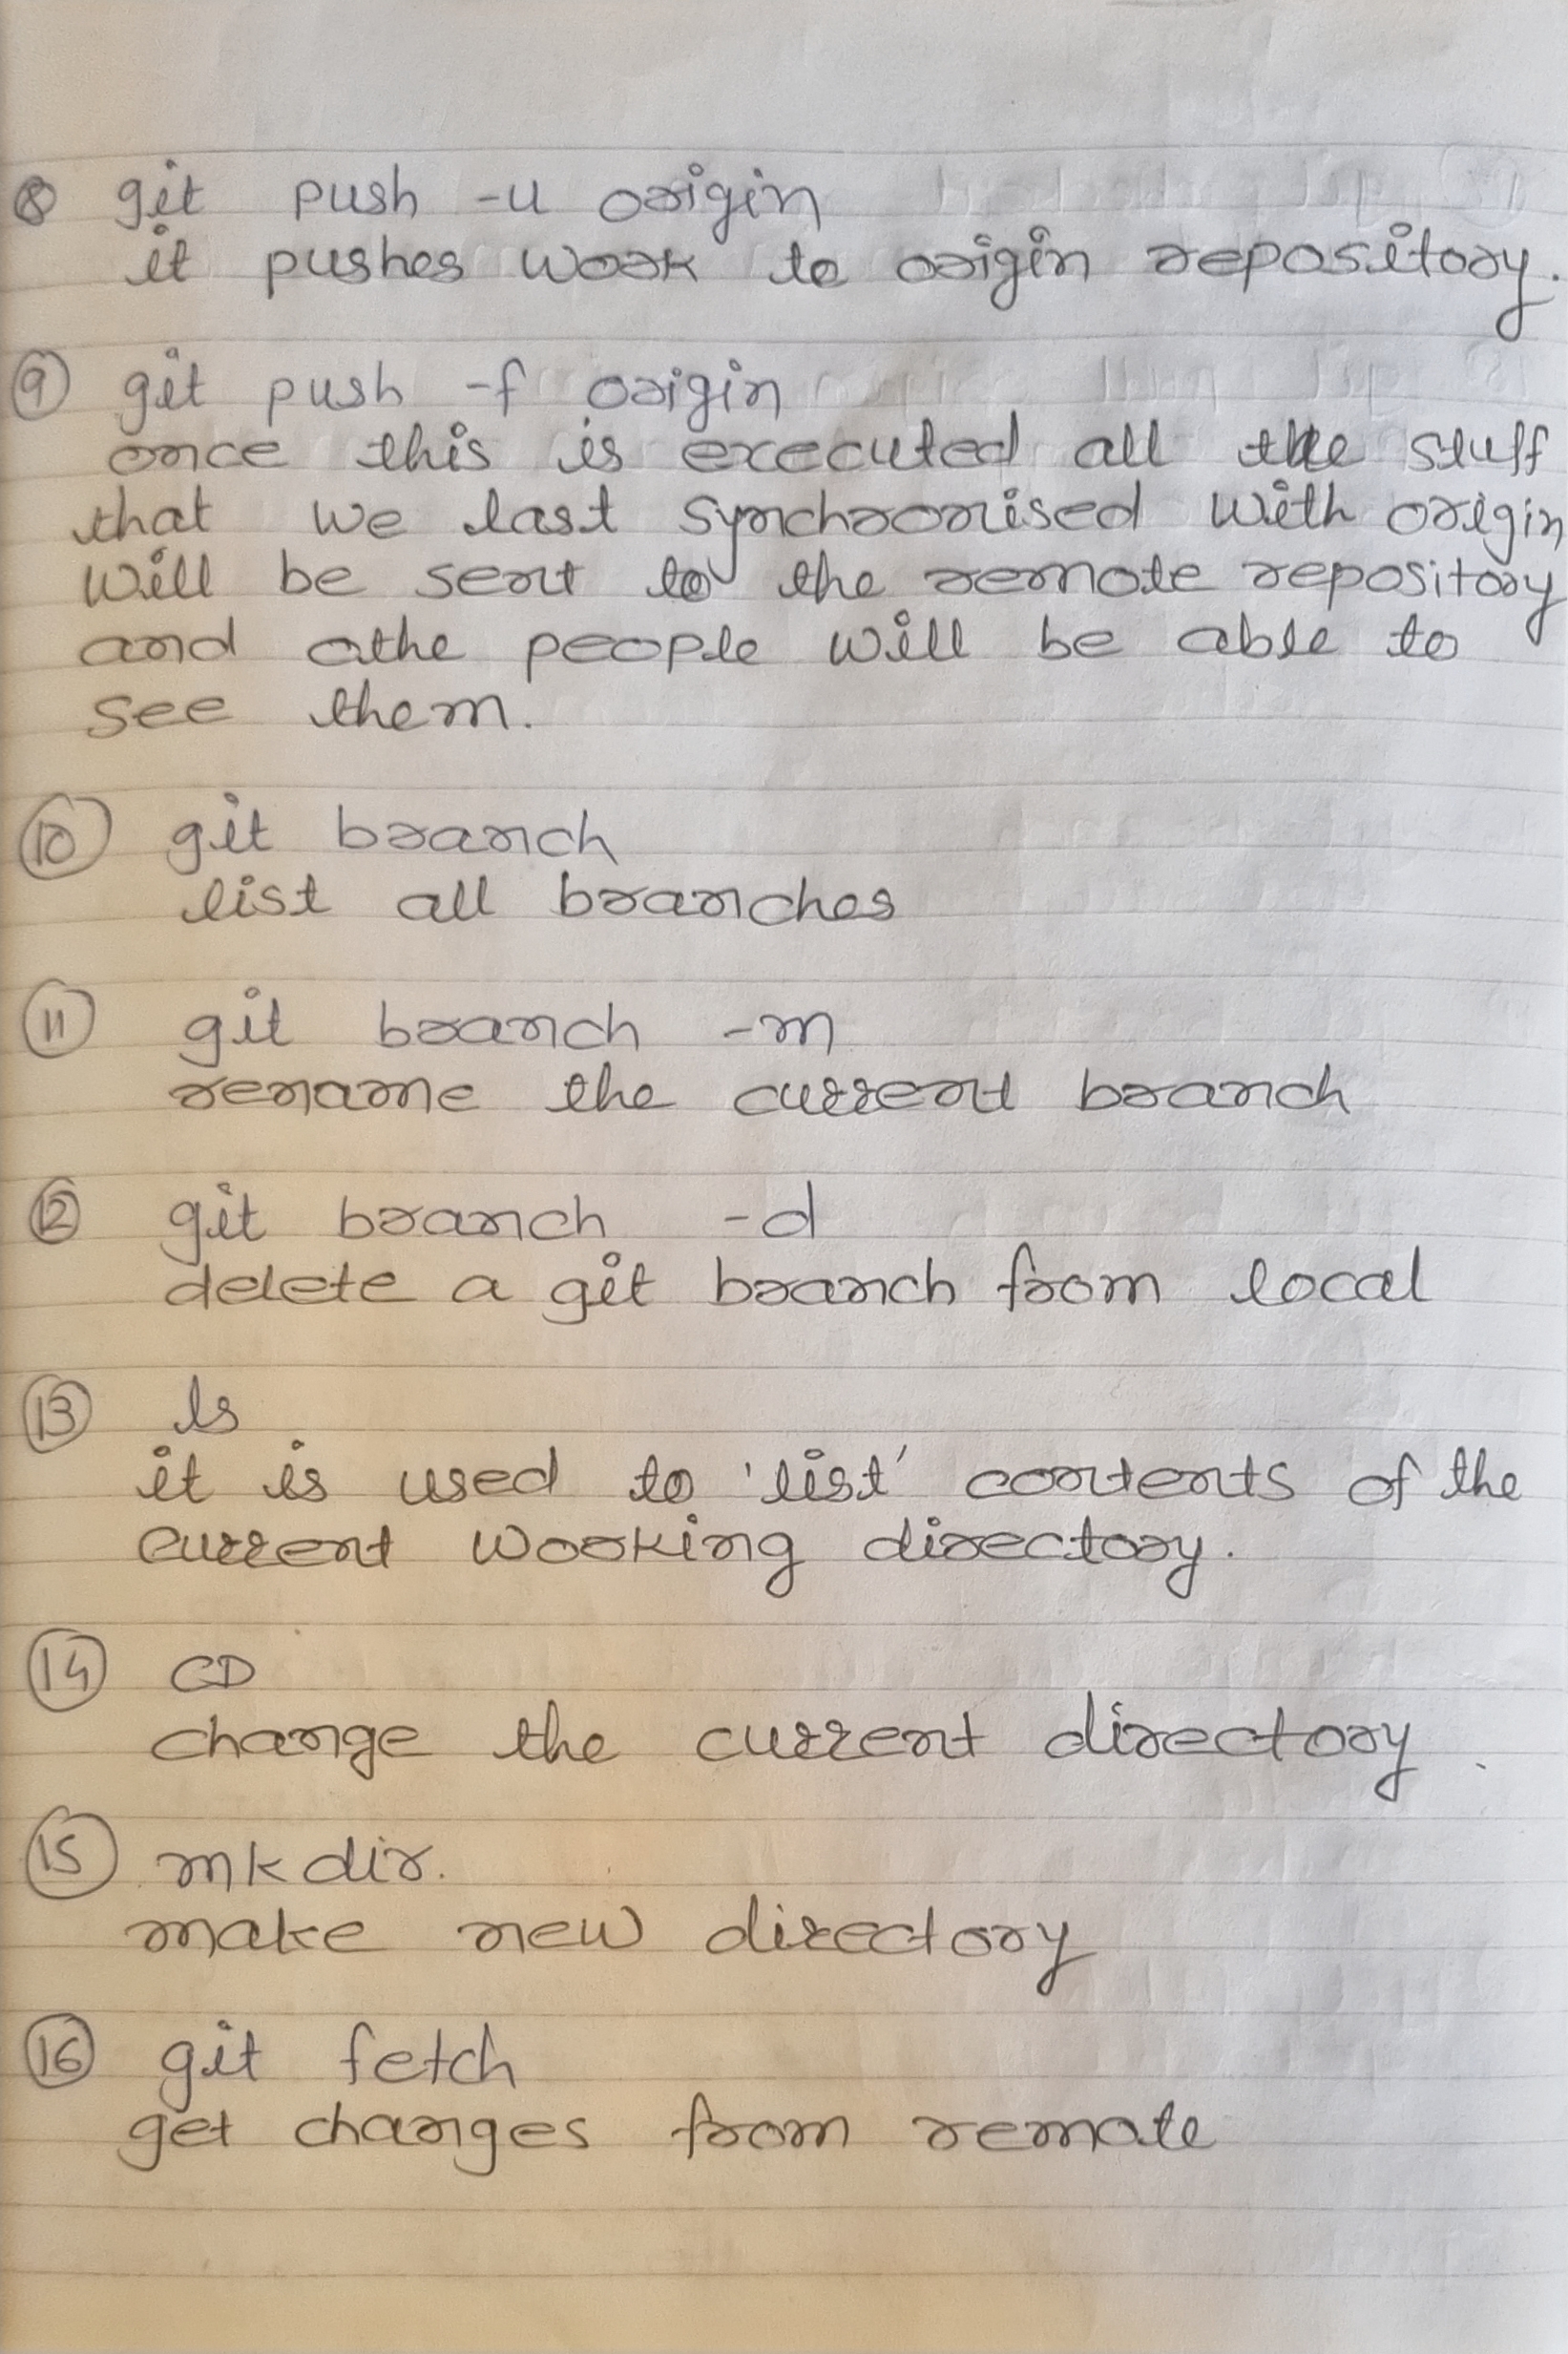 8 git push -u origin
it pushes work to origin repository.
9 git push -f origin
once this is executed all the stuff
that we last synchronised with origin
will be sent to the remote repository
and othe people will be able to
see them.
10 git branch
list all branches
11 git branch -m
rename the current branch
12 git branch -d
delete a git branch from local
13 ls
it is used to 'list' contents of the
current working directory.
14 CD
change the current directory.
15 mkdir.
make new directory
16 git fetch
get changes from remote